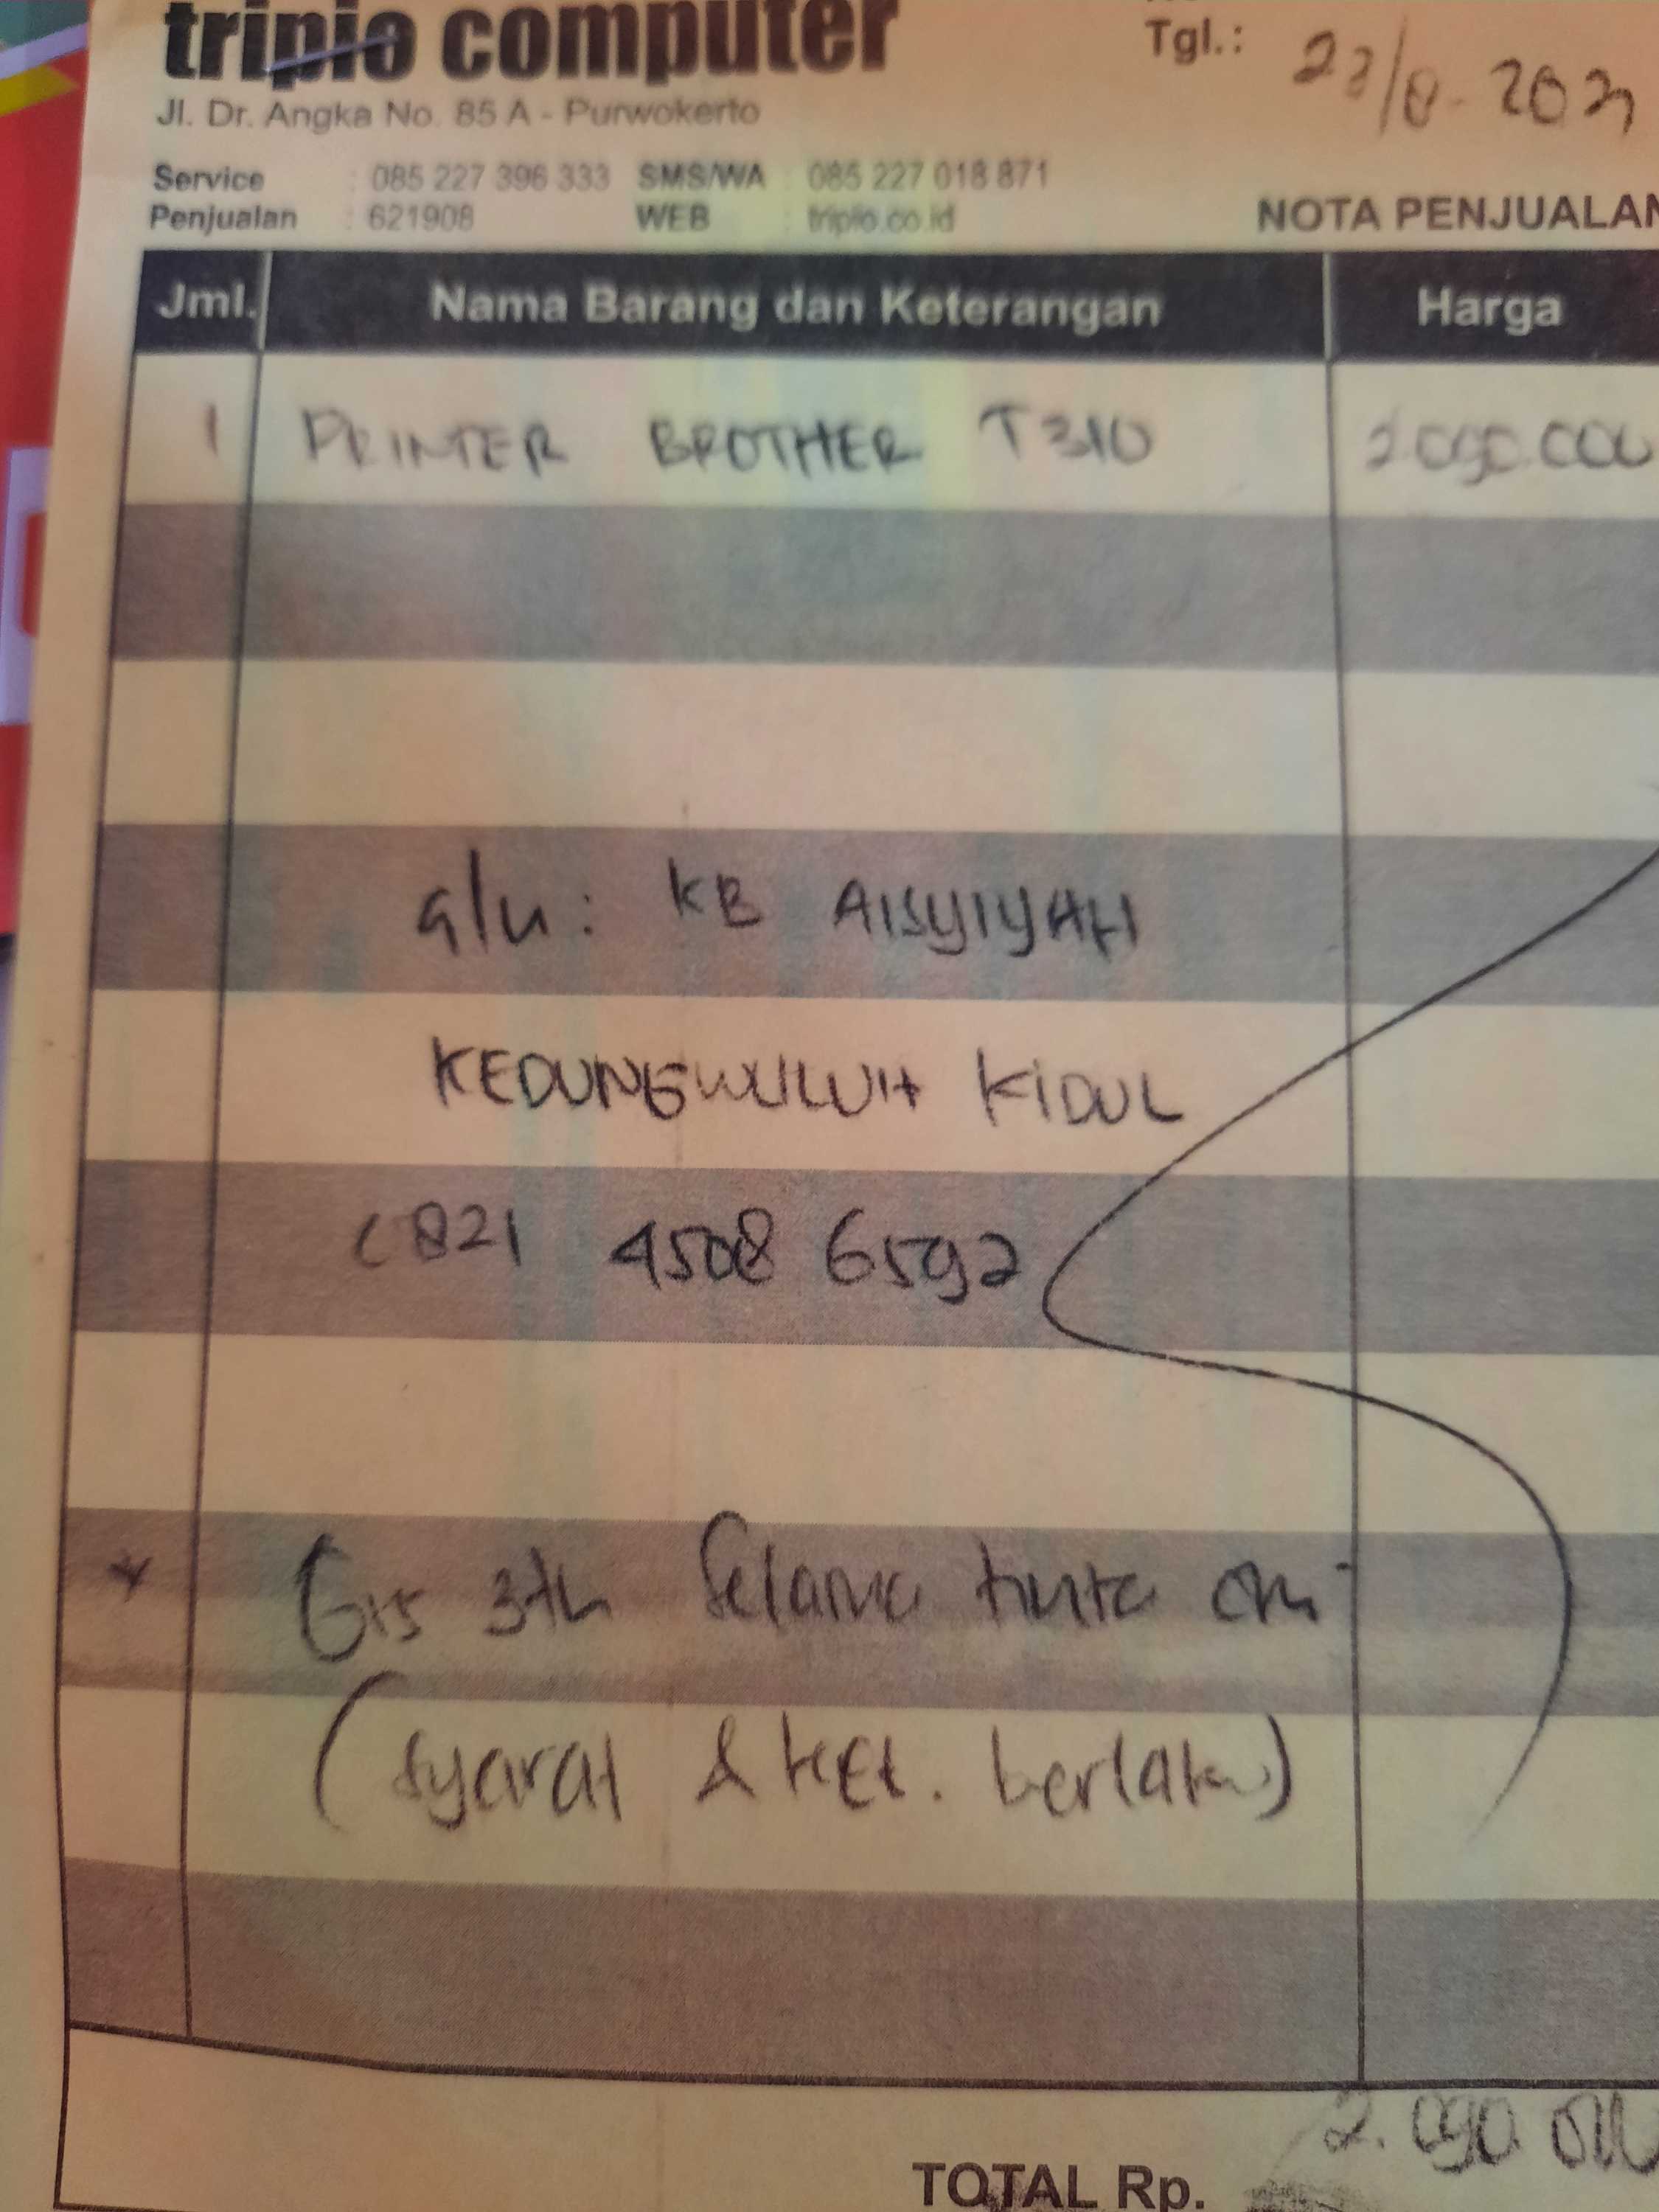 triplo computer
Tgl.: 23/8-2021
Jl. Dr. Angka No. 85 A - Purwokerto
Service : 085 227 396 333 SMS/WA : 085 227 018 871
Penjualan : 621908 WEB : triplo.co.id
NOTA PENJUALAN
Jml. Nama Barang dan Keterangan Harga
1 PRINTER BROTHER T310 2.090.000
a/n : KB AISYIYAH
KEDUNGWULUH KIDUL
0821 4508 6592
* Grs 3th Selama tinta ori
(syarat & ket. berlaku)
2.090.000
TOTAL Rp.